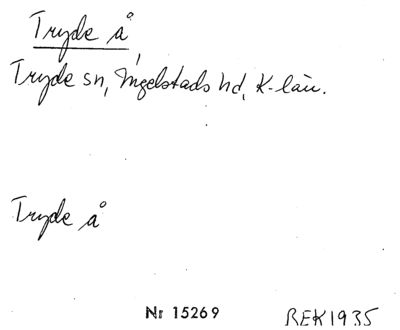 Tryde å
Tryde sn, Ingelstads hd, K-län.
Tryde å
Nr 15269
REK1935